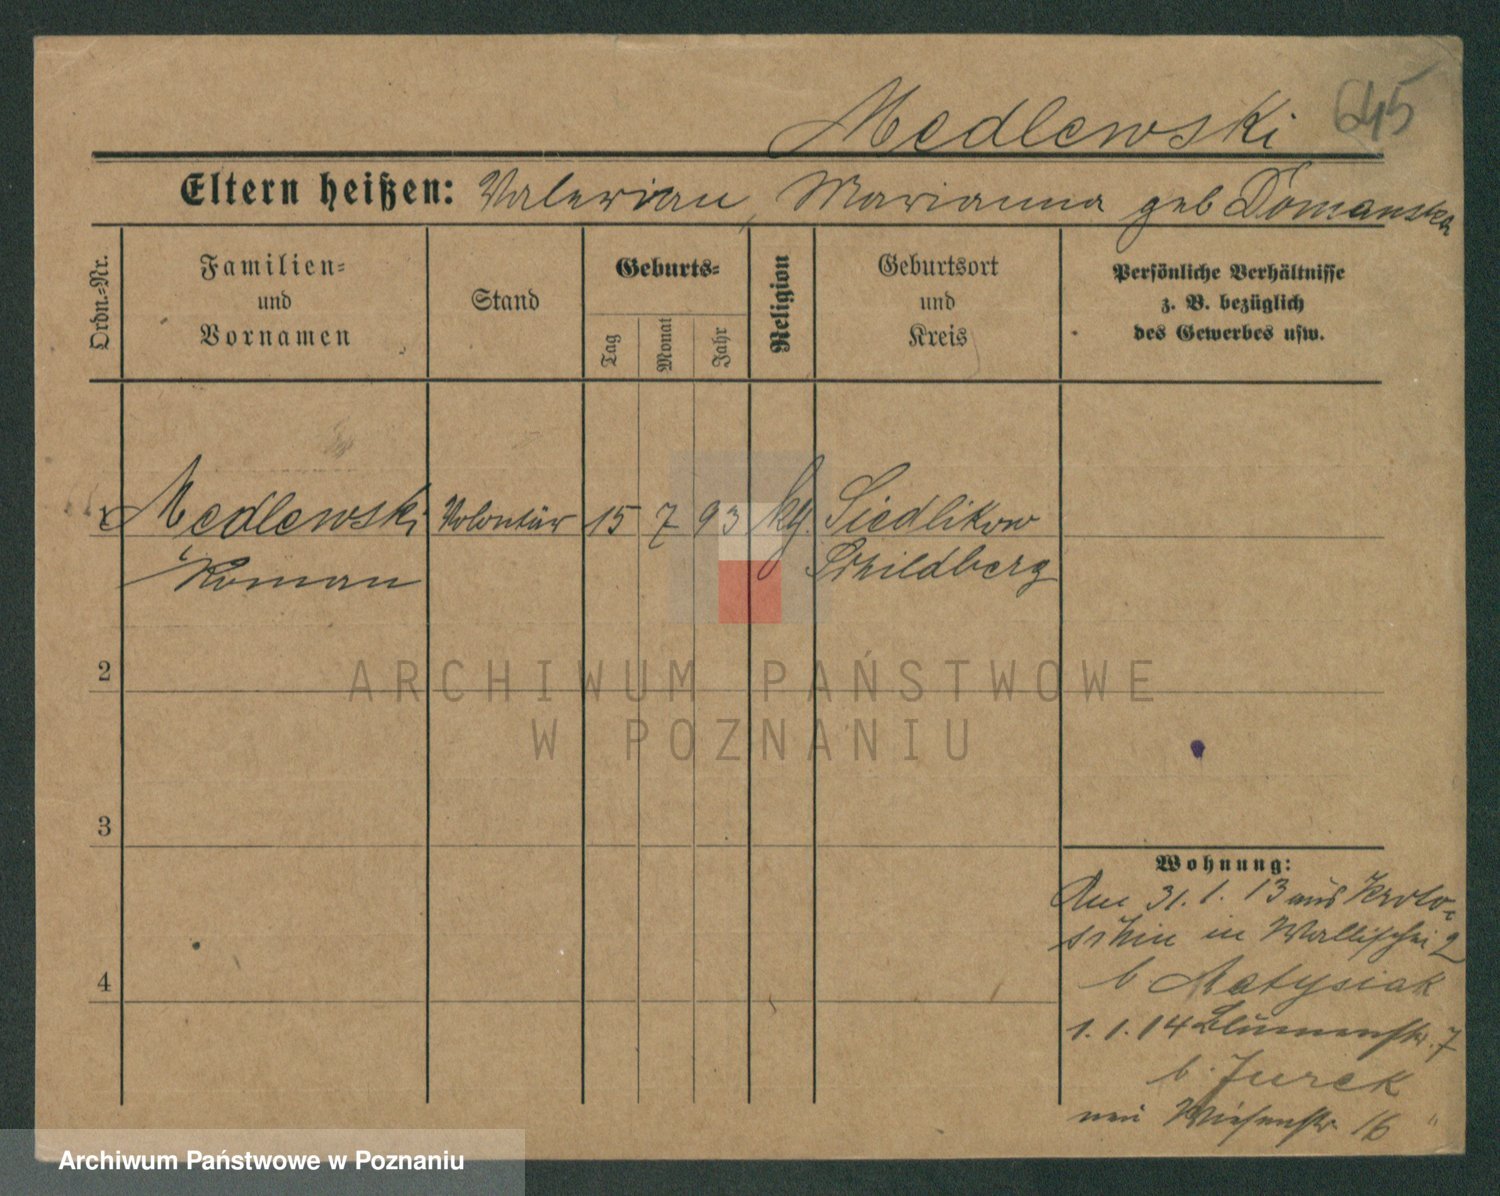 Medlewski 645
Eltern heißen: Valerian, Marianna geb Domanska
Ordn.=Nr.
Familien=
und
Vornamen
Stand
Geburts=
Tag
Monat
Jahr
Religion
Geburtsort
und
Kreis
Persönliche Verhältnisse
z. B. bezüglich
des Gewerbes usw.
1 Medlewski Volontär 15 7 93 kg. Siedlikow
Roman Schildberg
2
3
4
Wohnung:
Am 31. 1. 13 aus Kroto=
schin in Wallischei 2
b Matysiak
1. 1. 14 Blumenstr. 7
b. Jurek
neu Wiesenstr 16
ARCHIWUM PAŃSTWOWE
W POZNANIU
Archiwum Państwowe w Poznaniu